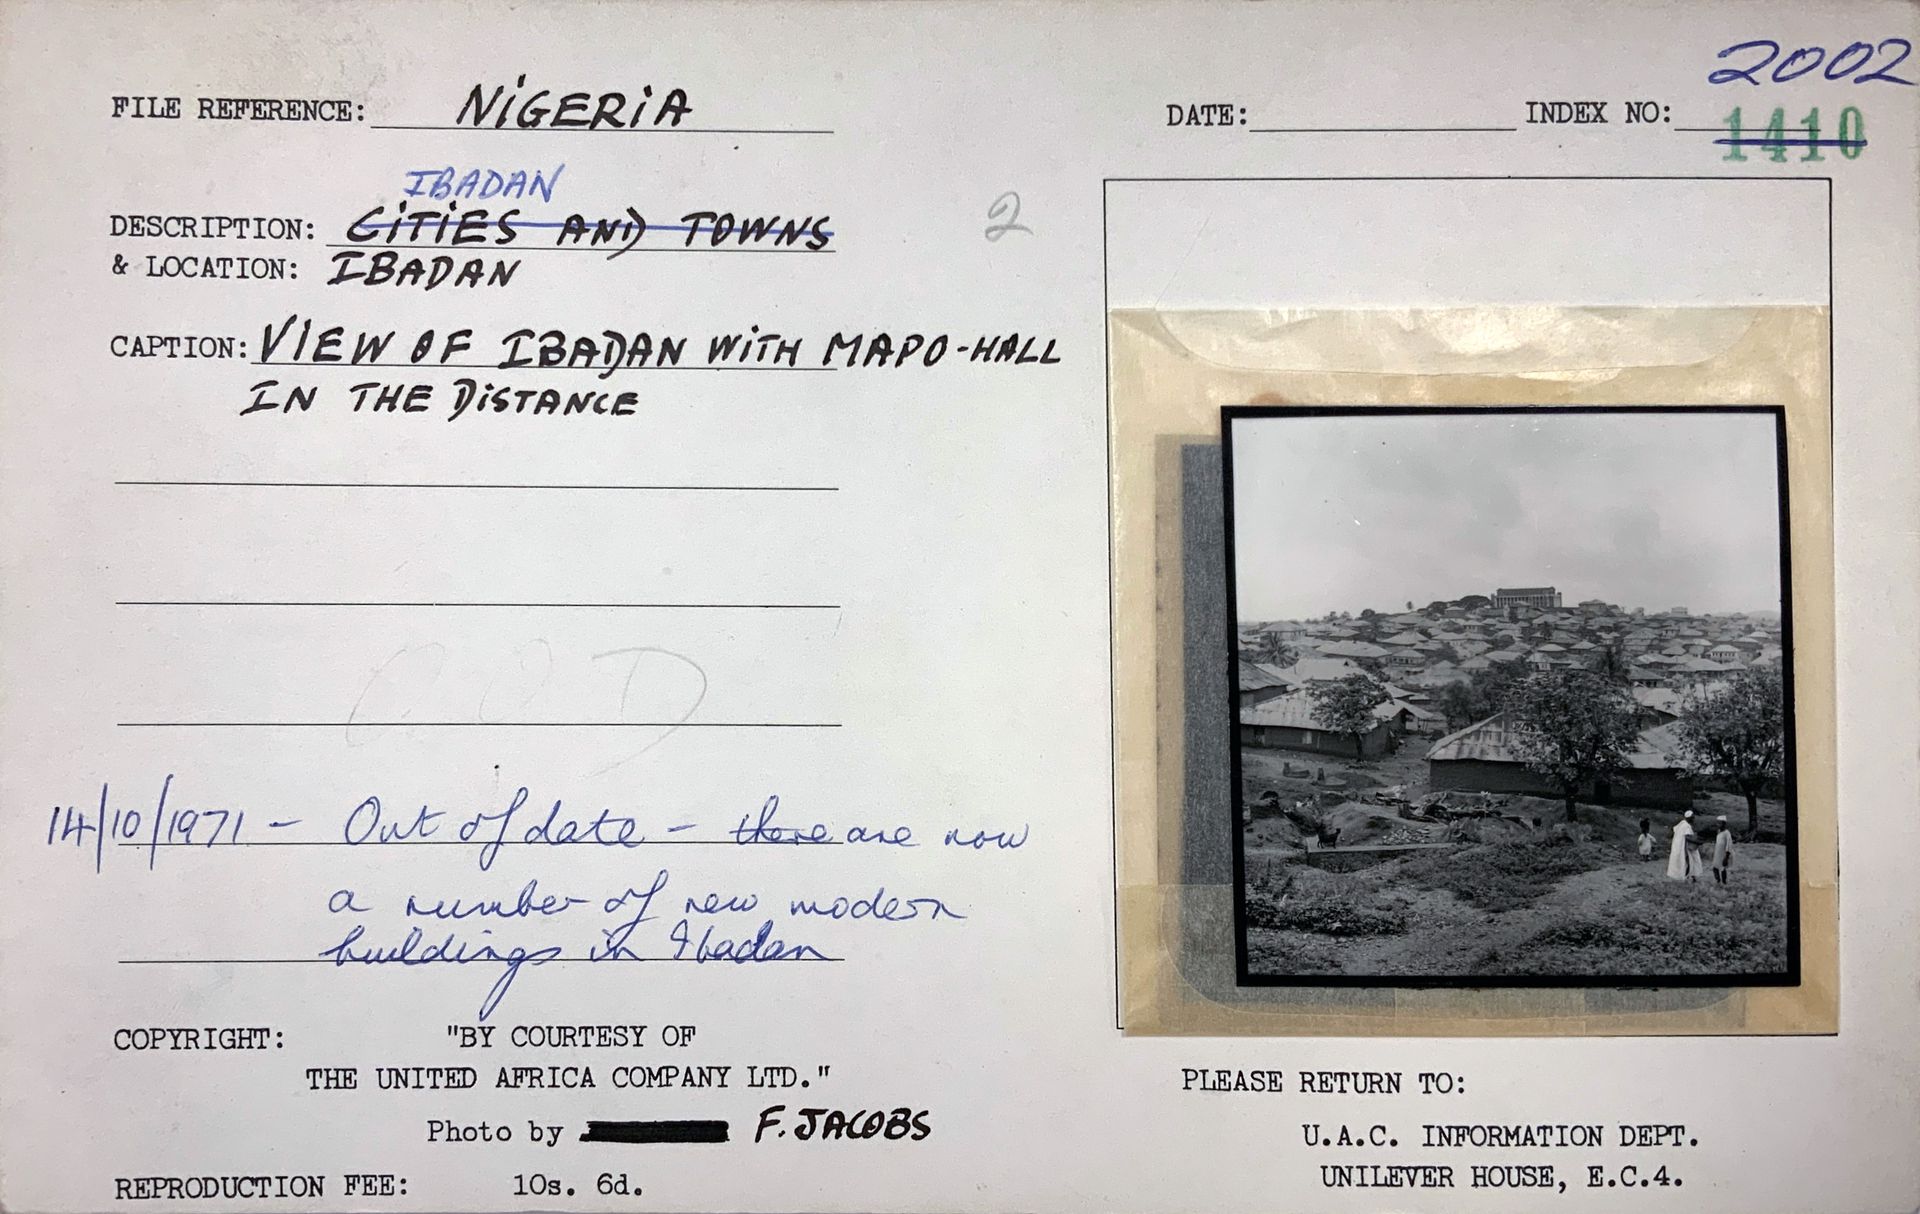 2002
FILE REFERENCE: NIGERIA
DATE: INDEX NO: 1410
IBADAN
DESCRIPTION: CITIES AND TOWNS
2
& LOCATION: IBADAN
CAPTION: VIEW OF IBADAN WITH MAPO-HALL
IN THE DISTANCE
COD
14/10/1971 - Out of date - there are now
a number of new modern
buildings in Ibadan
COPYRIGHT: "BY COURTESY OF
THE UNITED AFRICA COMPANY LTD."
Photo by F. JACOBS
REPRODUCTION FEE: 10s. 6d.
PLEASE RETURN TO:
U.A.C. INFORMATION DEPT.
UNILEVER HOUSE, E.C.4.